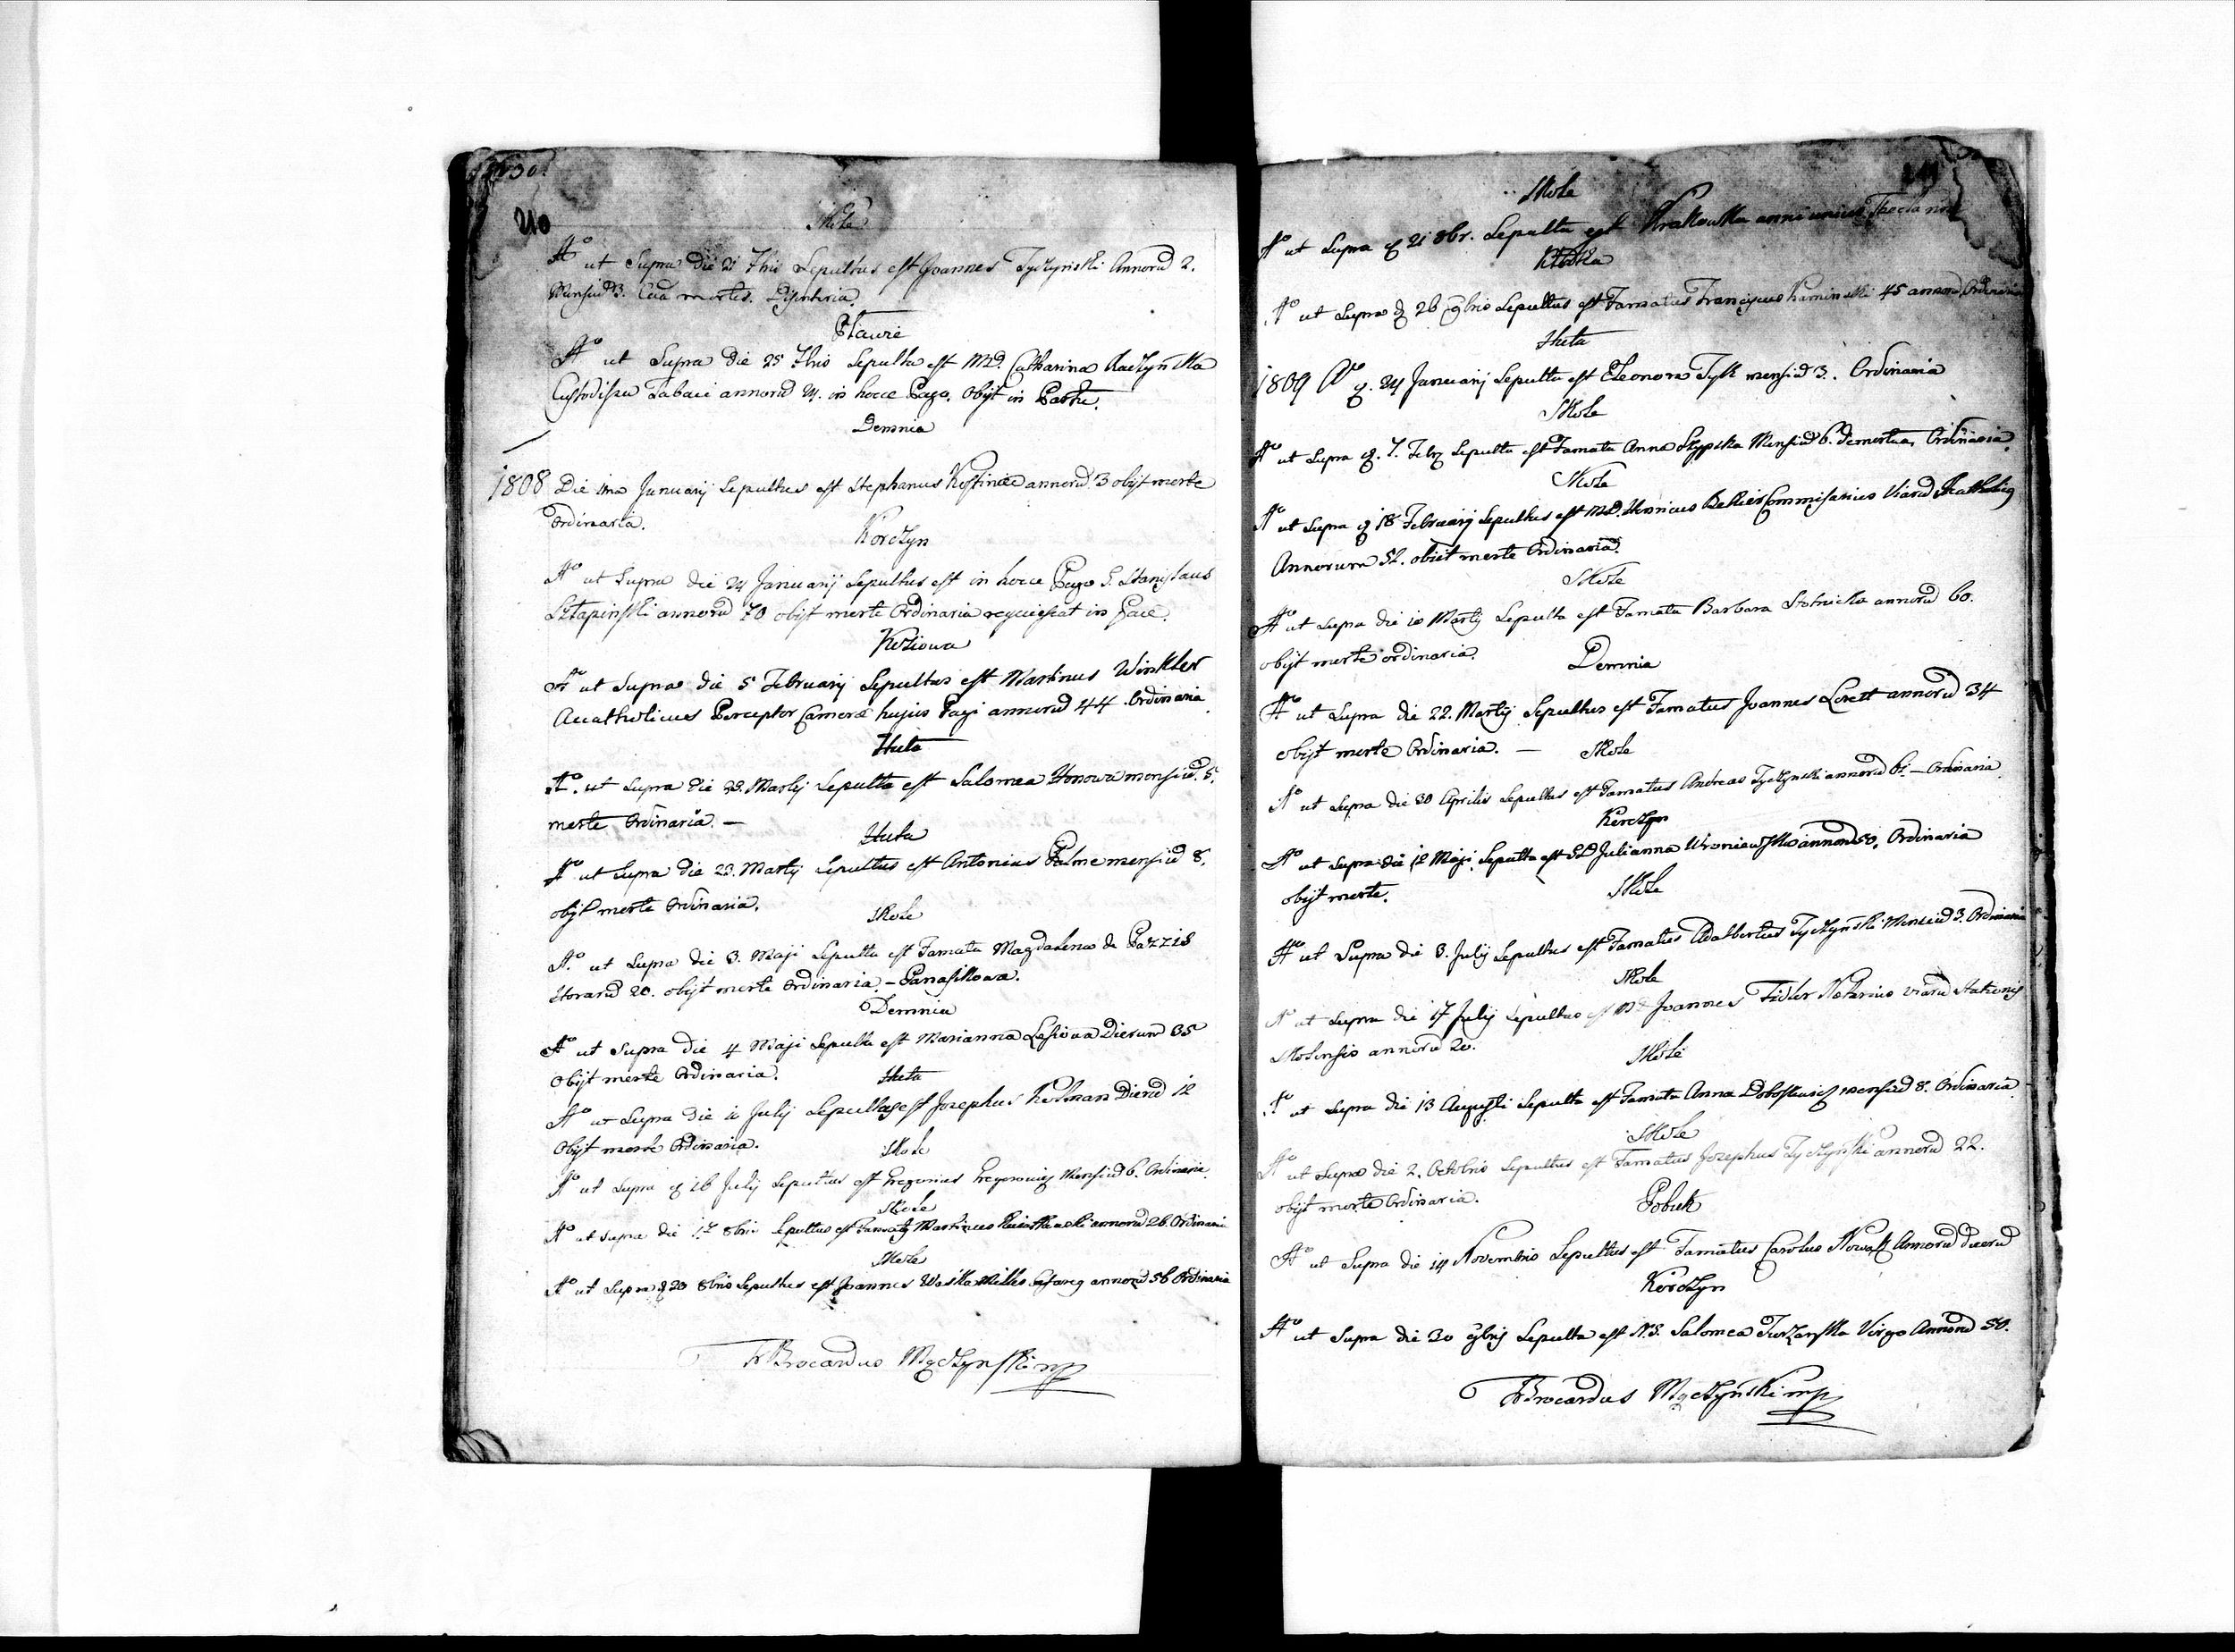 210
Skole
Aº ut Supra die 21 7bris Sepultus est Joannes Tyczynski Annorū 2.
Mensiū 3. Cũa mortis. Disinteria.
Pławie
Aº ut Supra die 25 7bris Sepulta est MD. Catharina Raczyńska
Custodissa Tabaci annorū 24. in hocce Pago. Obijt in Partu.
Demnia
1808 Die 1ma Januarij Sepultus est Stephanus annorū 3 obijt morte
Ordinaria.
Korczyn
Aº ut Supra die 24 Januarij Sepultus est in hocce Pago G. Stanislaus
Sztapinski annorū 70 obijt morte Ordinaria requiescat in Pace.
Koziowa
Aº ut Supra die 5 Februarij Sepultus est Martinus Winkler
Acatholicus Perceptor Cameræ hujus Pagi annorū 44 Ordinaria
Huta
Aº. ut Supra die Martij Sepulta est Salomea Honowa mensiū. 5.
morte Ordinaria. —
Huta
Aº ut Supra die 23. Martij Sepultus est Antonius Palme mensiū 8.
obijt morte Ordinaria.
Skole
Aº. ut Supra die 3. Maji Sepulta est Famata Magdalena de Pazzis
Horarū 20. obijt morte Ordinaria. – Panasikowa.
Demnia
Aº ut Supra die 4 Maji Sepulta est Marianna Dierum 35
Obijt morte Ordinaria.
Huta
Aº ut Supra die 10 Julij Sepultus est Josephus Kolman Dierū 12
Obijt morte Ordinaria.
Skole
Aº ut Supra 16 Julij Sepultus est Gregorius Mensiū 6. Ordinaria.
Skole
Aº ut Supra die 17 8bris Sepultus est Martinus annorū 26. Ordinaria
Skole
Aº ut Supra 20 8bris Sepultus est Joannes annorū 56 Ordinaria
Fr Brocardus Mączynski mp
Skole
Aº ut Supra 21 8br. Sepulta est Krakowska anni unius Thecla
Aº ut Supra 26 9bris Sepultus est Famatus Franciscus Kaminski 45 annorū Ordinaria
Huta
1809 Aº 24 Januarij Sepulta est Eleonora Tylk mensiū 3. Ordinaria
Skole
Aº ut Supra 7. Sepulta est Famata Anna Mensiū 6. Ordinaria
Skole
Aº ut Supra 18 Februarij Sepultus est MD. Henricus Commissarius Viarū
Annorum 52. obiit morte Ordinaria.
Skole
Aº ut Supra die 10 Martij Sepulta est Famata Barbara Slotnicka annorū 60.
obijt morte ordinaria.
Demnia
Aº ut Supra die 22. Martij Sepultus est Famatus Joannes Lorett annorū 34
obijt morte Ordinaria. —
Skole
Aº ut Supra die 30 Aprilis Sepultus est Famatus Andreas Tyczynski annorū 61. – Ordinaria.
Korczyn
Aº ut Supra die 12 Maji Sepulta est Julianna Wroniewska annorū 50. Ordinaria
obijt morte.
Skole
Aº ut Supra die 3. Julij Sepultus est Famatus Adalbertus Tyczyński Mensiū 3. Ordinaria
Skole
Aº ut Supra die 17 Julij Sepultus est MD Joannes Fidler Notarius viarū Stationis
Skolensis annorū 20.
Skole
Aº ut Supra die 13 Augusti Sepulta est Famata Anna mensiū 8. Ordinaria
Skole
Aº ut Supra die 2. Octobris Sepultus est Famatus Josephus Tyczyński annorū 22.
obijt morte Ordinaria.
Pobuk
Aº ut Supra die 14 Novembris Sepultus est Famatus Carolus Nowak Annorū duorū
Korczyn
Aº ut Supra die 30 9bris Sepulta est Salomea Turzanska Virgo Annorū 50.
Fr Brocardus Mączyński mp